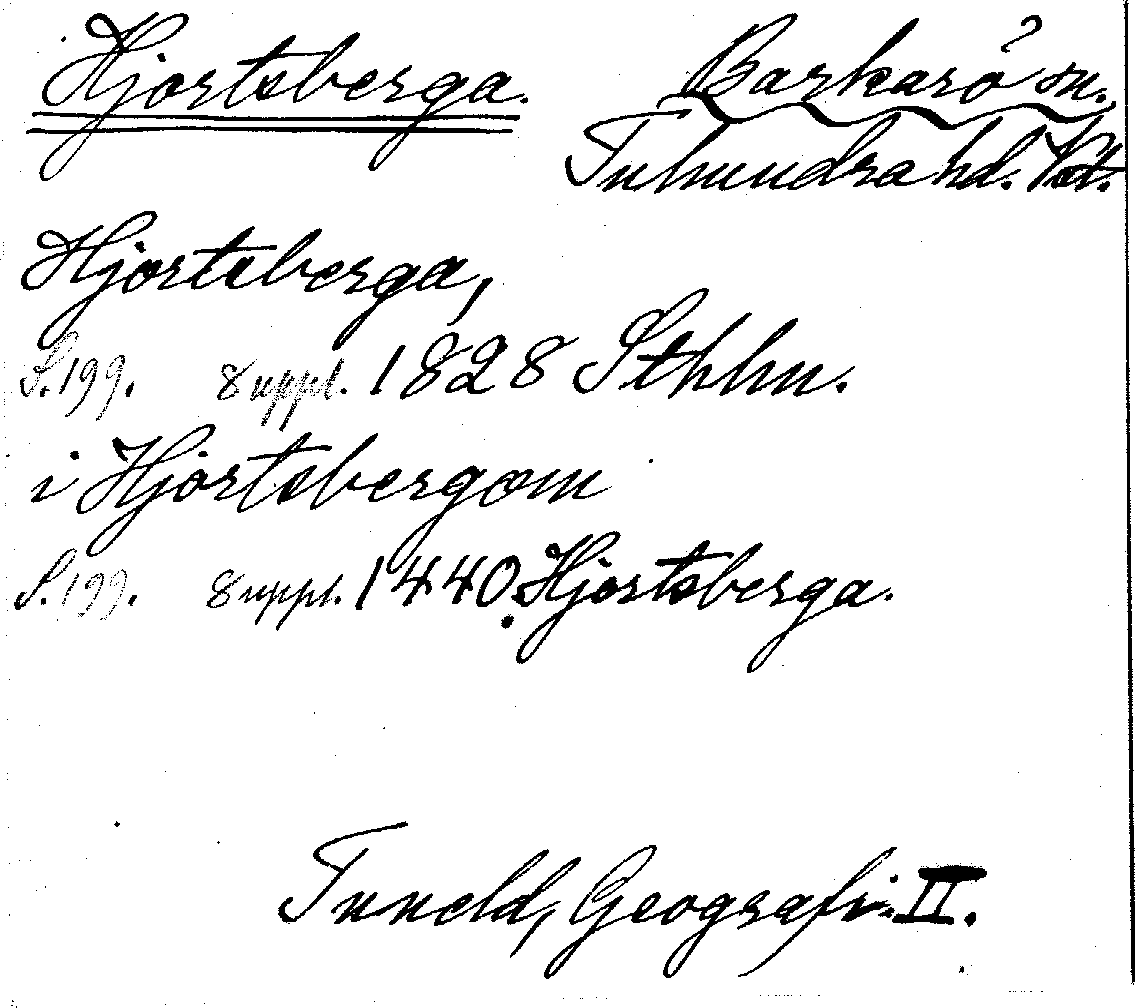 Hjortsberga. Barkarö sn.
Tuhundra hd. Vstm.
Hjortsberga,
S. 199. Suppl. 1828 Sthlm.
i Hjortsbergom
S. 199. Suppl. 1440. Hjortsberga.
Tuneld, Geografi. II.